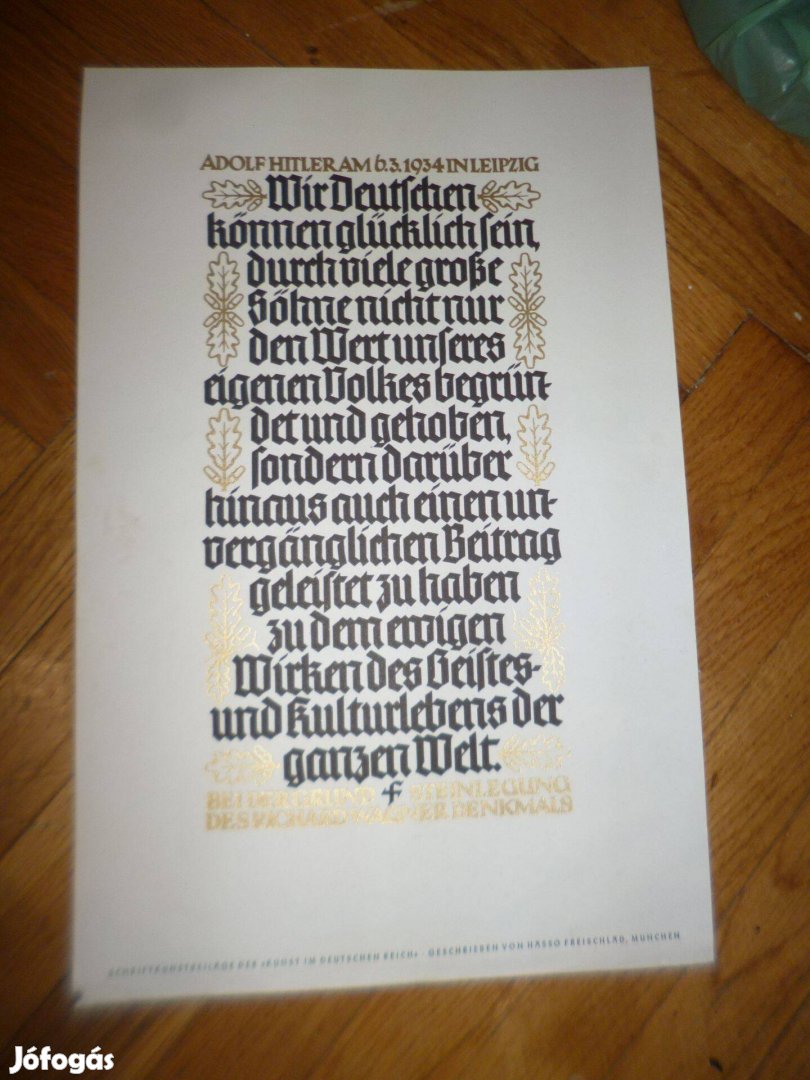 ADOLF HITLER AM 6.3.1934 IN LEIPZIG
Wir Deutschen
können glücklich sein,
durch viele große
Söhne nicht nur
den Wert unseres
eigenen Volkes begrün-
det und gehoben,
sondern darüber
hinaus auch einen un-
vergänglichen Beitrag
geleistet zu haben
zu dem ewigen
Wirken des Geistes-
und Kulturlebens der
ganzen Welt.
BEI DER GRUND STEINLEGUNG
DES RICHARD WAGNER DENKMALS
SCHRIFTKUNSTBEILAGE DER »KUNST IM DEUTSCHEN REICH« · GESCHRIEBEN VON HASSO FREISCHLAD, MÜNCHEN
Jófogás